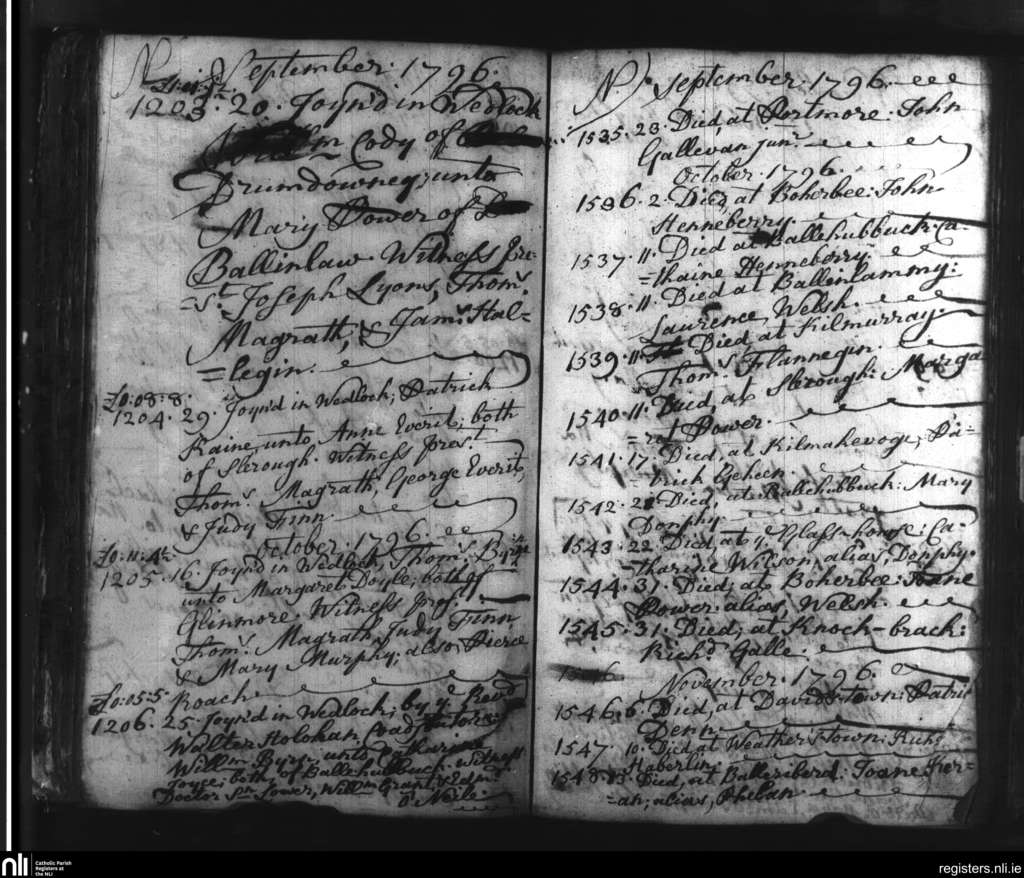 N September. 1796.
1203. 20. Joyn'd in Wedlock
Cody of
Drumdowney; unto
Mary Power of
Ballinlaw. Witness Pre-
=st. Joseph Lyons, Thoms.
Magrath, & Jams. Hal=
=legin.
£0:08:8.
1204. 29. Joyn'd in Wedlock; Patrick
Kaine, unto, Anne Everit; both
of Slerough. Witness prest.
Thoms. Magrath, George Everit,
& Judy Finn.
October. 1796.
£0:11:4½.
1205. 16. Joyn'd in Wedlock, Thoms. Byrn
unto Margaret Doyle; both of
Glinmore. Witness prest.
Thoms. Magrath, Judy Finn
& Mary Murphy; also, Pierce
Roach
£0:05:5.
1206. 25. Joyn'd in Wedlock; by ye. Revd.
Walter Holohan, Coadjutore:
Willm Byrn, unto Catharine
Joyce; both, of Ballehubbuck. witness
Doctor Power, Willm Grant, & Edmd.
O Neile.
N. September. 1796.
1535. 23. Died, at Portmore: John
Gallevan junr.
October. 1796.
1536. 2. Died, at Boherbee: John
Henneberry.
1537. 11. Died at Ballehubbuck. Ca-
=thaine Henneberry.
1538. 11. Died at Ballinlammy:
Laurence, Welsh.
1539. 11. Died at Kilmurray.
Thoms. Flannegin.
1540. 11. Died, at Slerough: Marga
=ret Power.
1541. 17. Died, at Kilmakevoge; Pa=
=trick Geheen.
1542. Died, at Ballehubbuck: Mary
Donphy.
1543. 22. Died, at ye. Glass-house: Ca-
=tharine Wilson, alias, Donphy.
1544. 31. Died; at Boherbee: Joane
Power. alias, Welsh.
1545. 31. Died; at Knock-brack:
Richd. Galle.
November. 1796.
1546. 6. Died, at Davids-town: Patric
Denn
1547. 10. Died at Weathers-town: Richd.
Haberlin.
1548. Died, at Balleriberd: Joane Kier-
=an; alias, Philan
nli
Catholic Parish
Registers at
the NLI
registers.nli.ie